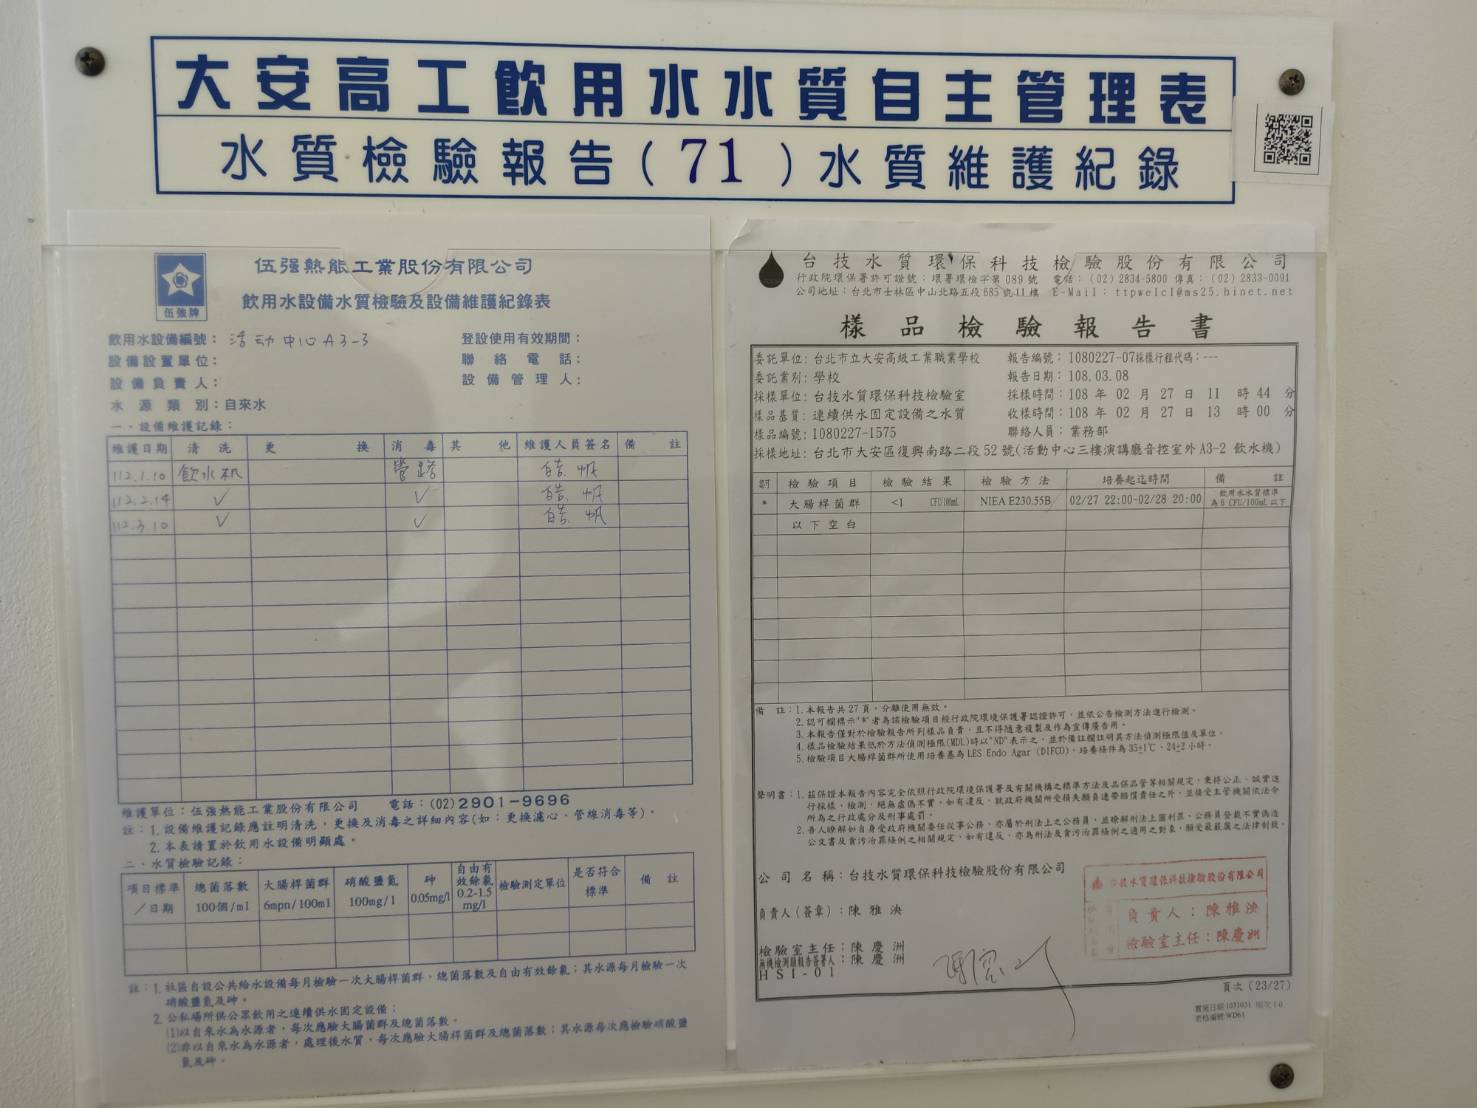 大安高工飲用水水質自主管理表
水質檢驗報告(71)水質維護紀錄
伍强牌
伍强熱能工業股份有限公司
飲用水設備水質檢驗及設備維護紀錄表
飲用水設備編號：活动中心A3-3
登設使用有效期間：
設備設置單位：
聯絡電話：
設備負責人：
設備管理人：
水源類別：自來水
一、設備維護記錄：
維護日期 清洗 更換 消毒 其他 維護人員簽名 備註
112.1.10 飲水机 管路
112.2.14 ✓ ✓
112.3.10 ✓ ✓
維護單位：伍强熱能工業股份有限公司 電話：(02)2901-9696
註：1.設備維護記錄應註明清洗，更換及消毒之詳細內容(如：更換濾心、管線消毒等)。
2.本表請置於飲用水設備明顯處。
二、水質檢驗記錄：
項目標準／日期 總菌落數100個/ml 大腸桿菌群6mpn/100ml 硝酸鹽氮100mg/l 砷0.05mg/l 自由有效餘氯0.2-1.5mg/l 檢驗測定單位 是否符合標準 備註
註：1.社區自設公共給水設備每月檢驗一次大腸桿菌群、總菌落數及自由有效餘氯；其水源每月檢驗一次
硝酸鹽氮及砷。
2.公私場所供公眾飲用之連續供水固定設備：
(1)以自來水為水源者，每次應驗大腸桿菌群及總菌落數。
(2)非以自來水為水源者，處理後水質，每次應驗大腸桿菌群及總菌落數；其水源每次應檢驗硝酸鹽
氮及砷。
台技水質環保科技檢驗股份有限公司
行政院環保署許可證號：環署環檢字第089號 電話：(02)2834-5800 傳真：(02)2833-0091
公司地址：台北市士林區中山北路五段685號11樓 E-Mail：ttpwelcl@ms25.hinet.net
樣品檢驗報告書
委託單位：台北市立大安高級工業職業學校 報告編號：1080227-07採樣行程代碼：---
委託業別：學校 報告日期：108.03.08
採樣單位：台技水質環保科技檢驗室 採樣時間：108年02月27日11時44分
樣品基質：連續供水固定設備之水質 收樣時間：108年02月27日13時00分
樣品編號：1080227-1575 聯絡人員：業務部
採樣地址：台北市大安區復興南路二段52號(活動中心三樓演講廳音控室外A3-2飲水機)
檢驗項目 檢驗結果 檢驗方法 培養起迄時間 備註
* 大腸桿菌群 <1 CFU/100mL NIEA E230.55B 02/27 22:00-02/28 20:00 飲用水水質標準為6 CFU/100mL以下
以下空白
備註：1.本報告共27頁，分離使用無效。
2.認可欄標示'*'者為該檢驗項目經行政院環境保護署認證許可，並依公告檢測方法進行檢測。
3.本報告僅對於檢驗報告所列樣品負責，且不得隨意複製及作為宣傳廣告用。
4.樣品檢驗結果低於方法偵測極限(MDL)時以"ND"表示之，並於備註欄註明其方法偵測極限值及單位。
5.檢驗項目大腸桿菌群所使用培養基為LES Endo Agar (DIFCO)，培養條件為35±1℃、24±2小時。
聲明書：1.茲保證本報告內容完全依照行政院環境保護署及有關機構之標準方法及品保品管等相關規定，秉持公正、誠實進
行採樣、檢測，絕無虛偽不實，如有違反，就政府機關所受損失願負連帶賠償責任之外，並接受主管機關依法令
所為之行政處分及刑事處罰。
2.吾人瞭解如自身受政府機關委任從事公務，亦屬於刑法上之公務員，並瞭解刑法上圖利罪、公務員登載不實偽造
公文書及貪污治罪條例之相關規定，如有違反，亦為刑法及貪污治罪條例之適用之對象，願受最嚴厲之法律制裁。
公司名稱：台技水質環保科技檢驗股份有限公司
負責人(簽章)：陳雅泱
檢驗室主任：陳慶洲
無機檢測類報告簽署人：陳慶洲
HSI-01
台技水質環保科技檢驗股份有限公司
負責人：陳雅泱
檢驗室主任：陳慶洲
頁次(23/27)
實施日期1031031 版次1.0
表格編號WD61